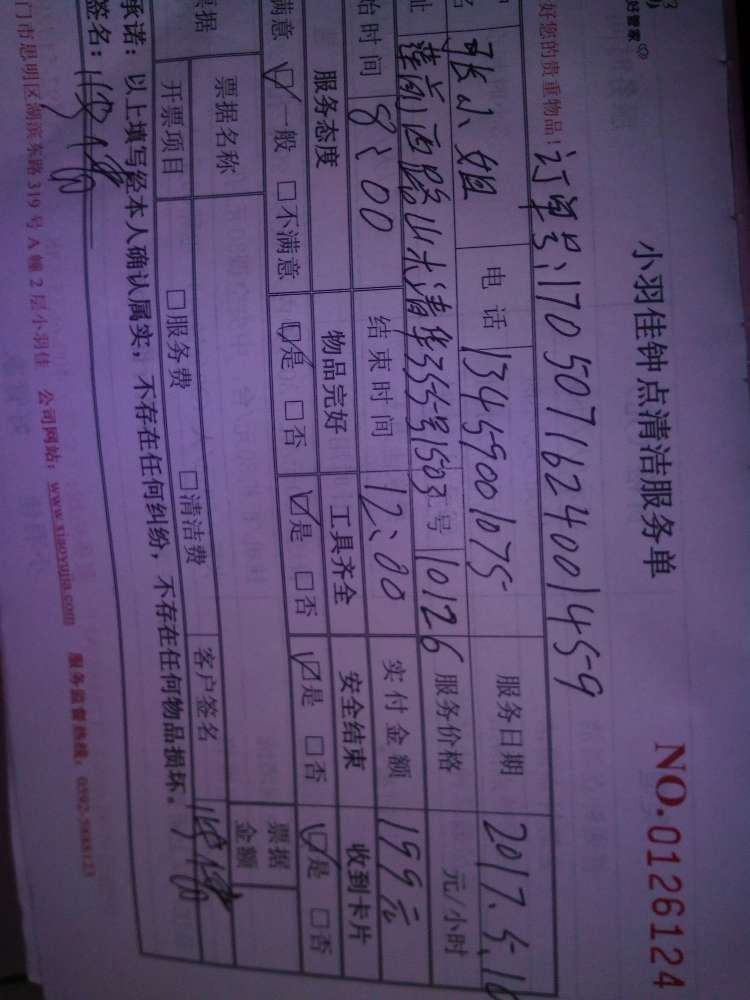 好管家
小羽佳钟点清洁服务单
NO.0126124
好您的贵重物品！订单号：1705071624001459
张小姐 电话 13459001075 服务日期 2017.5.1
莲前西路山水清华335号1503 号 10126 服务价格 元/小时
时间 8:00 结束时间 12:00 实付金额 199元
服务态度 物品完好 工具齐全 安全结束 收到卡片
满意 ☑一般 □不满意 ☑是 □否 ☑是 □否 ☑是 □否 ☑是 □否
票据 票据名称 客户签名 票据金额
开票项目 □服务费 □清洁费
承诺：以上填写经本人确认属实，不存在任何纠纷，不存在任何物品损坏。
签名：
门市思明区湖滨东路319号A幢2层小羽佳 公司网站：www.xiaoyujia.com 服务监督热线：0592-5888123